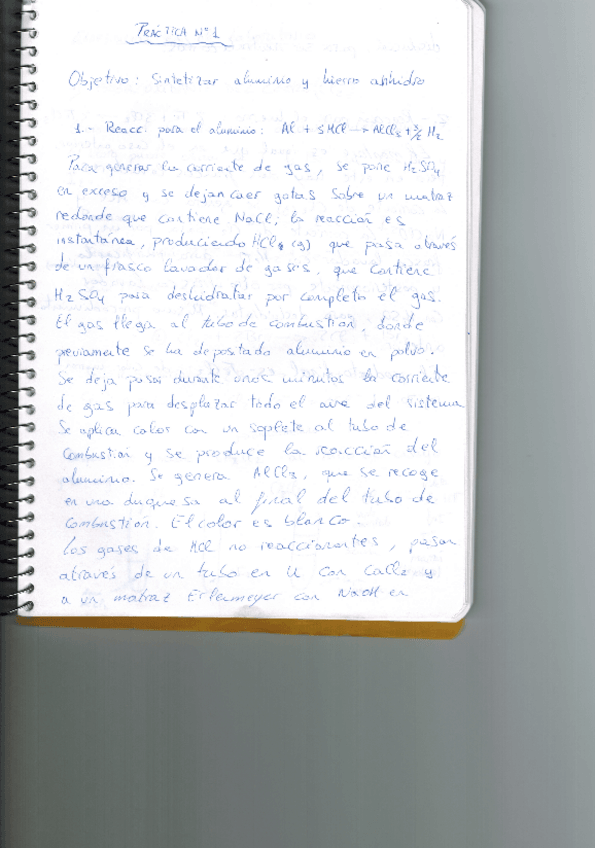 PRÁCTICA Nº 1
Objetivo: Sintetizar aluminio y hierro anhidro
1.- Reacc. para el aluminio: Al + 3HCl → AlCl3 + 3/2 H2
Para generar la corriente de gas, se pone H2SO4
en exceso y se dejan caer gotas sobre un matraz
redondo que contiene NaCl; la reacción es
instantánea, produciendo HCl (g) que pasa através
de un frasco lavador de gases, que contiene
H2SO4 para deshidratar por completo el gas.
El gas llega al tubo de combustión, donde
previamente se ha depostado aluminio en polvo.
Se deja pasar durante unos minutos la corriente
de gas para desplazar todo el aire del sistema
Se aplica calor con un soplete al tubo de
combustión y se produce la reacción del
aluminio. Se genera AlCl3, que se recoge
en una duquesa al final del tubo de
combustión. El color es blanco.
Los gases de HCl no reaccionantes, pasan
através de un tubo en U con CaCl2 y
a un matraz Erlenmeyer con NaOH en